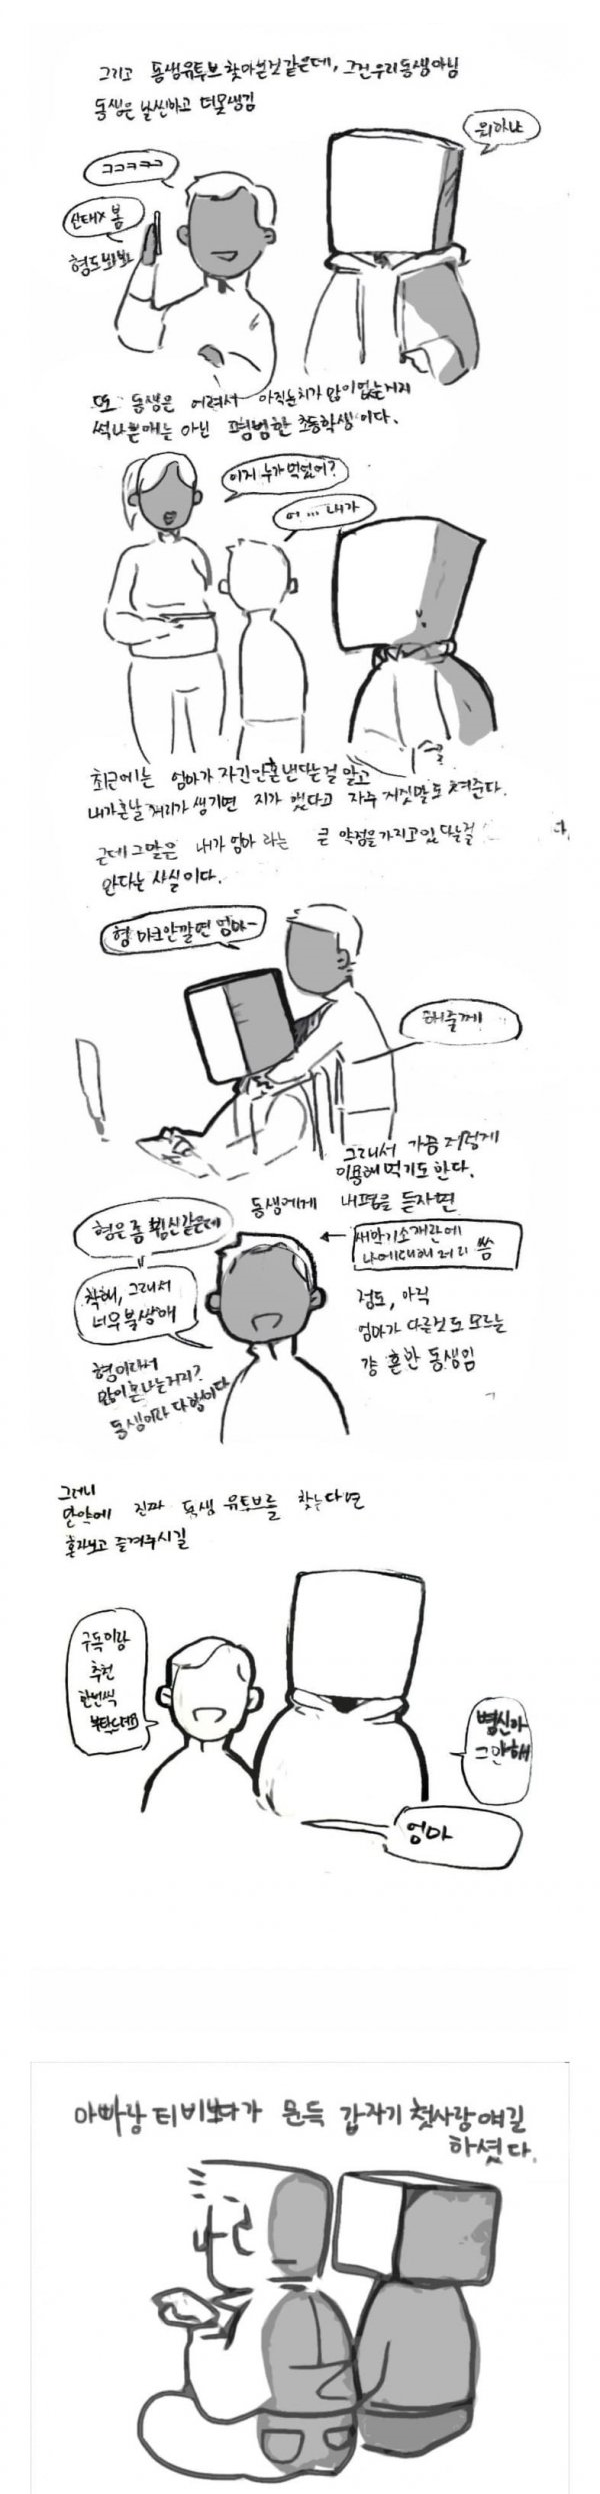 그리고 동생유투브 찾아보신것같은데, 그건우리동생아님
동생은 날씬하고 더못생김
뭐하냐
ㅋㅋㅋㅋㅋ
봄
형도봐봐
또 동생은 어려서 아직눈치가 많이없는거지
썩 나쁜애는 아닌 평범한 초등학생이다.
이거 누가먹었어?
어... 내가
최근에는 엄마가 자긴안혼낸다는걸 알고
내가혼날 거리가 생기면 지가 했다고 자주 거짓말도 쳐준다.
근데 그말은 내가 엄마 라는 큰 약점을 가지고있다는걸
안다는 사실이다.
형 마크안깔면 엄마~
해줄께
그래서 가끔 저렇게
이용해먹기도 한다.
동생에게 내평을 듣자면
형은 좀 병신같은데
착해, 그래서
너무불쌍해
새학기소개란에
나에대해 저리 씀
형이라서
많이혼나는거지?
동생이라 다행이다
정도, 아직
엄마가 다른것도 모르는
걍 흔한 동생임
그러니
만약에 진짜 동생 유투브를 찾는다면
혼자보고 즐겨주시길
구독이랑
추천
한번씩
부탁드려요
병신아
그만해
엄마
아빠랑 티비보다가 문득 갑자기 첫사랑얘길
하셨다.